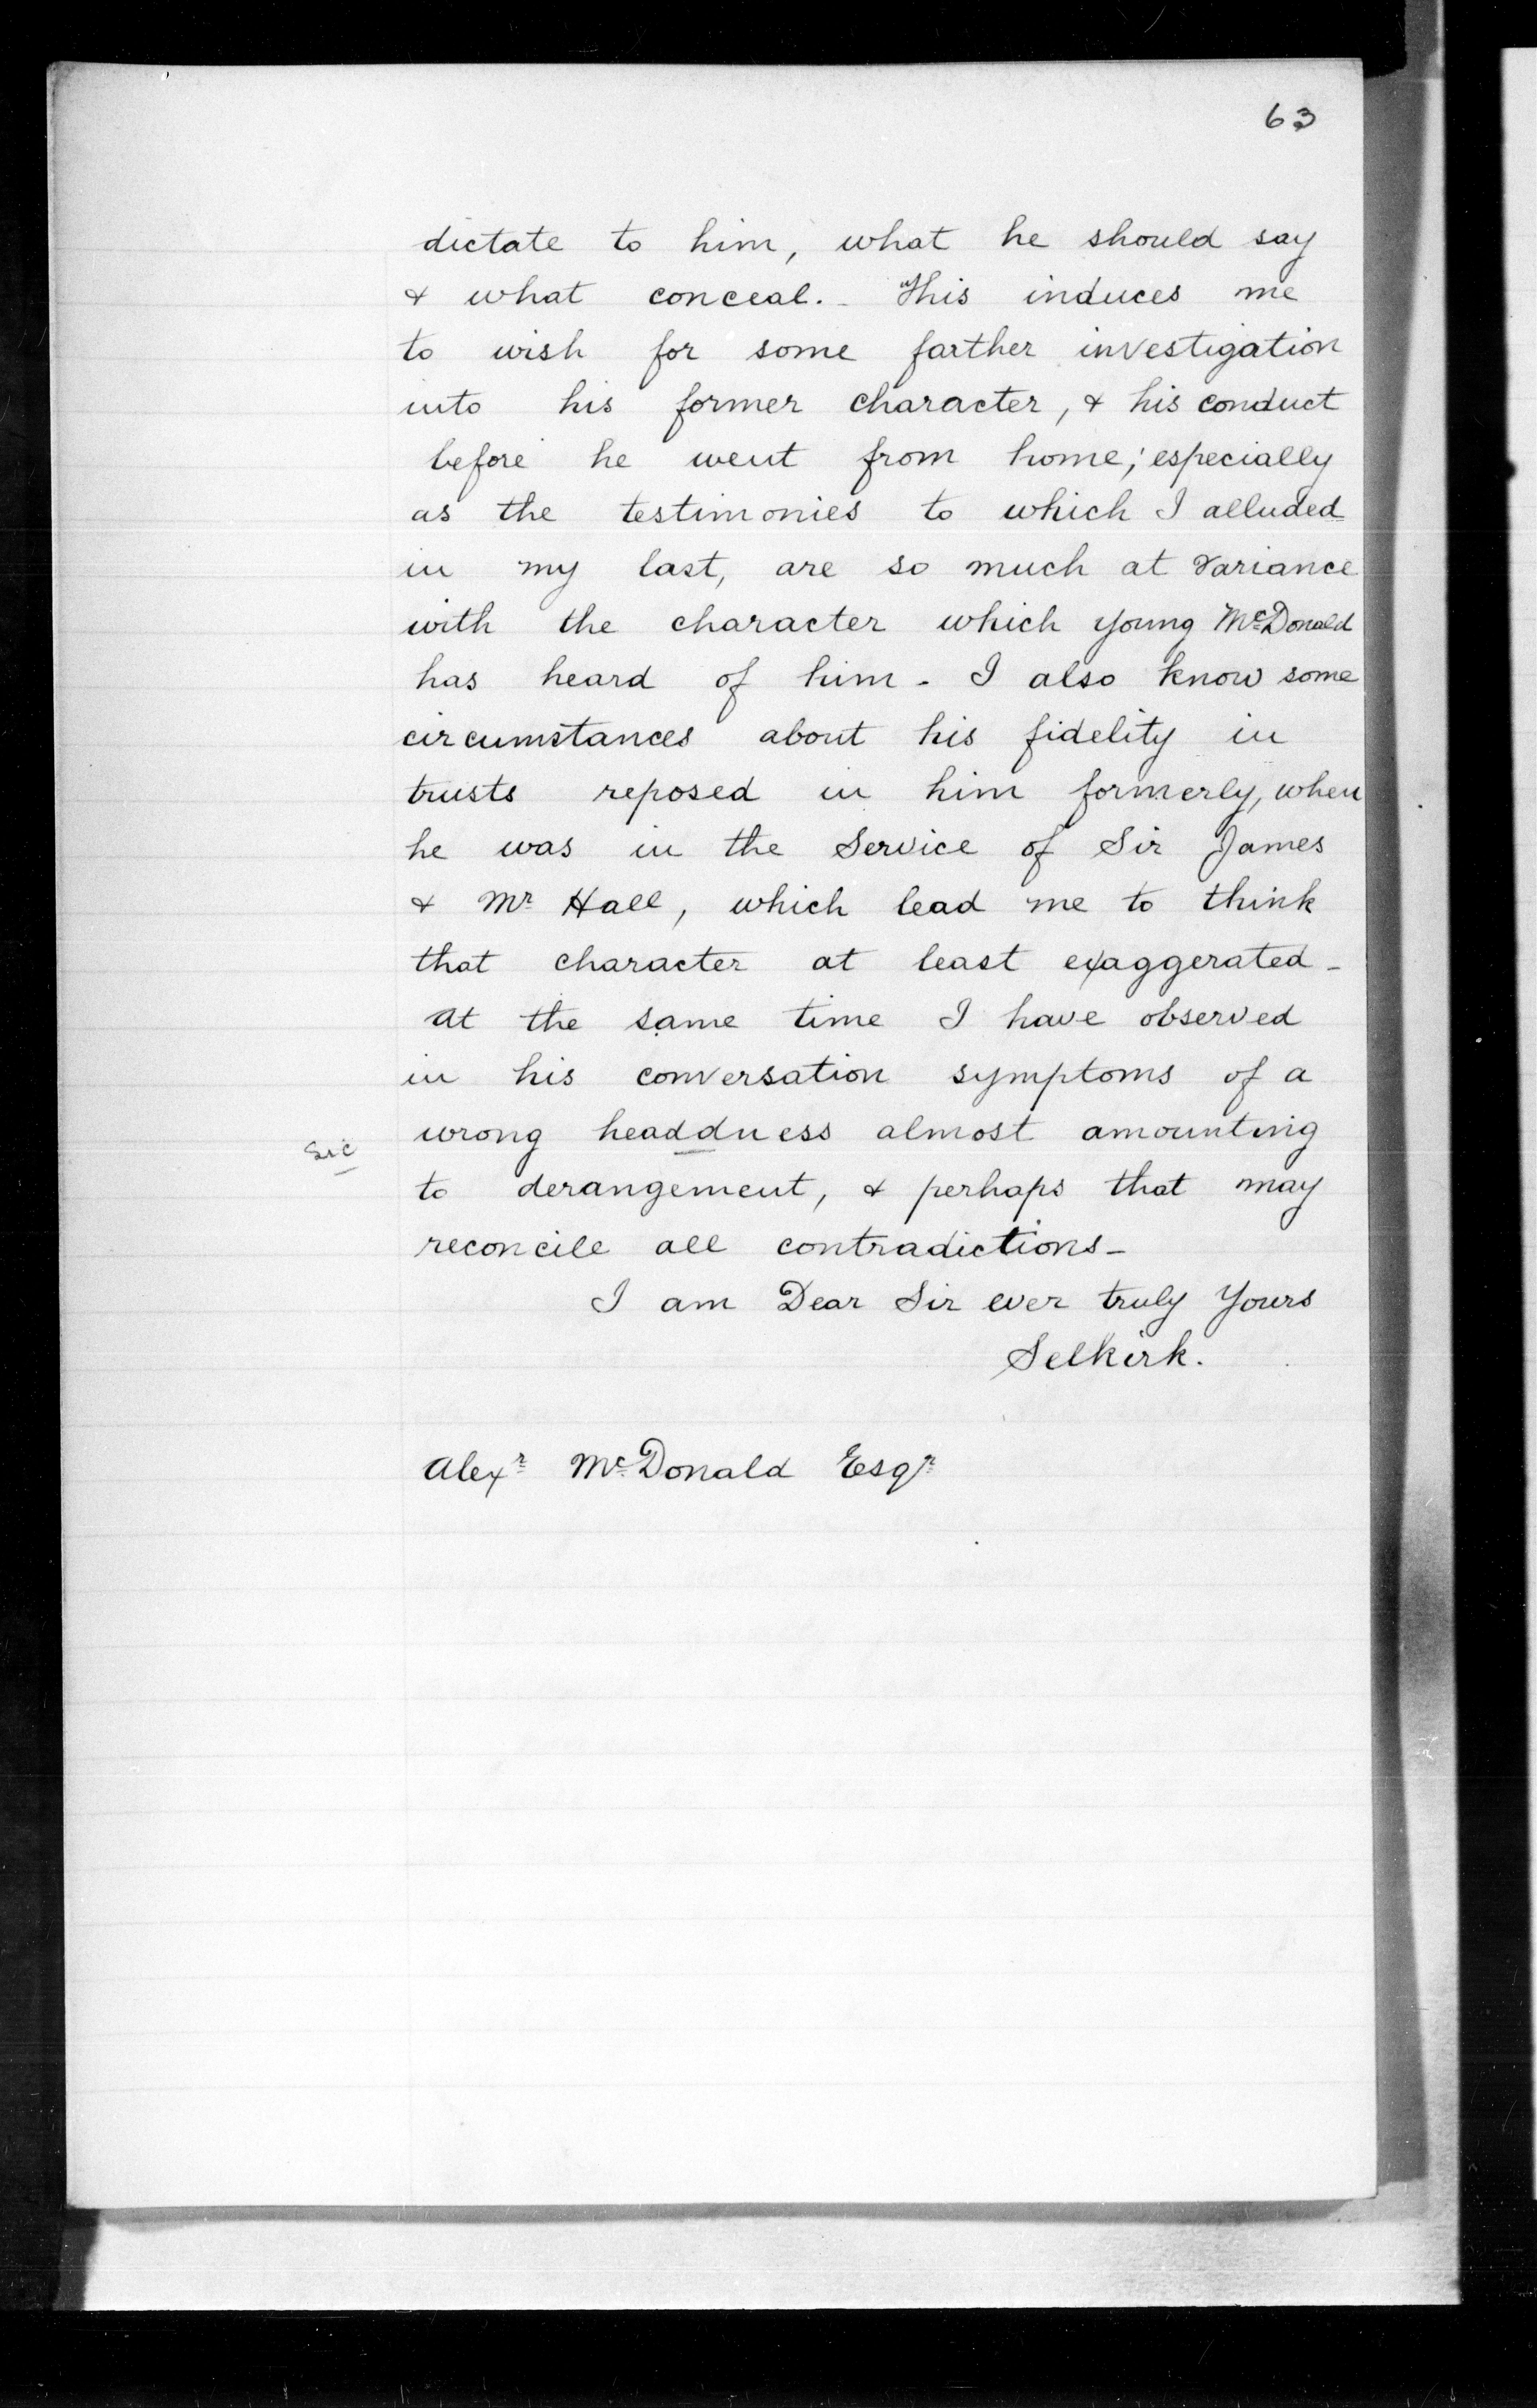 63
dictate to him, what he should say
& what conceal. - This induces me
to wish for some farther investigation
into his former character, & his conduct
before he went from home; especially
as the testimonies to which I alluded
in my last, are so much at variance
with the character which young McDonald
has heard of him - I also know some
circumstances about his fidelity in
trusts reposed in him formerly, when
he was in the Service of Sir James
& Mr Hall, which lead me to think
that character at least exaggerated -
at the same time I have observed
in his conversation symptoms of a
wrong headdness almost amounting
sic
to derangement, & perhaps that may
reconcile all contradictions -
I am Dear Sir ever truly Yours
Selkirk.
Alexr McDonald Esqr